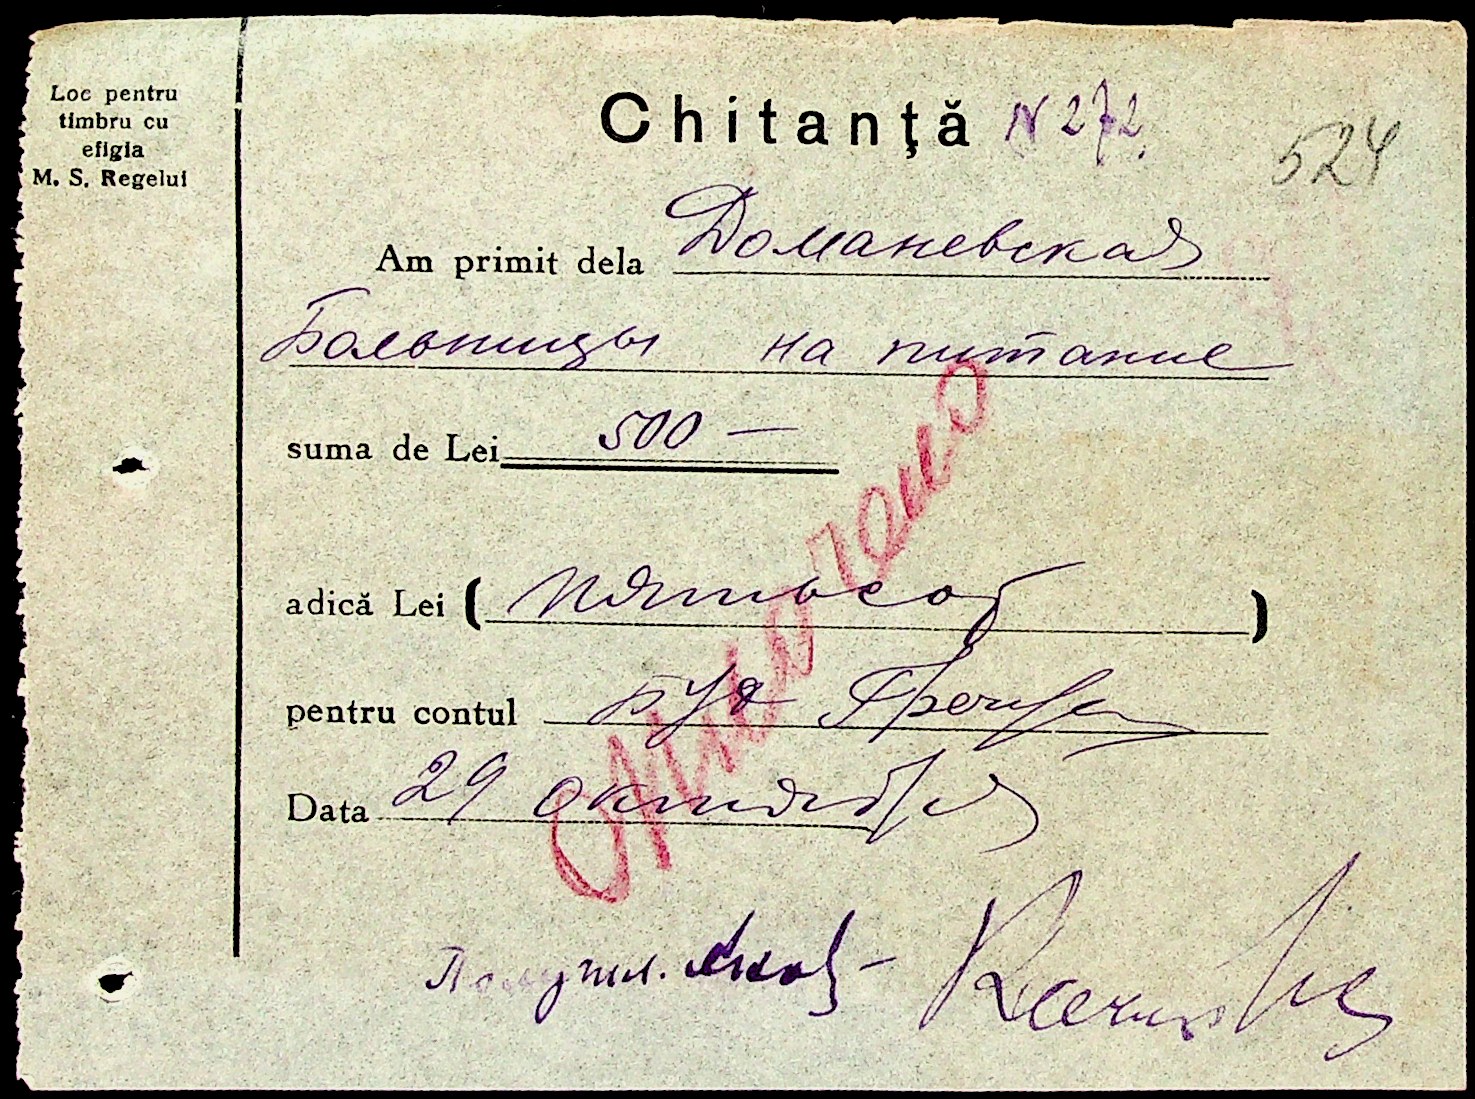 Loc pentru
timbru cu
efigia
M. S. Regelui
Chitanţă N 272.
524
Am primit dela Доманевская
Больницы на питание
suma de Lei 500 —
adică Lei ( пятьсот )
pentru contul
Data 29 октября
Оплочено
Получил.